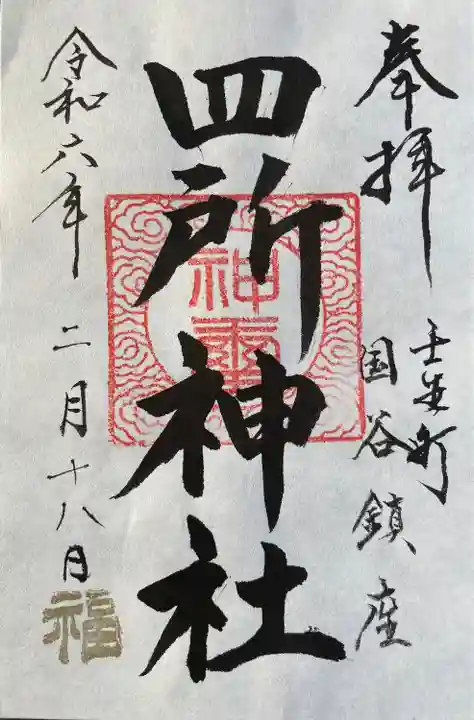 奉拝
壬生町
国谷鎮座
四所神社
令和六年二月十八日
福